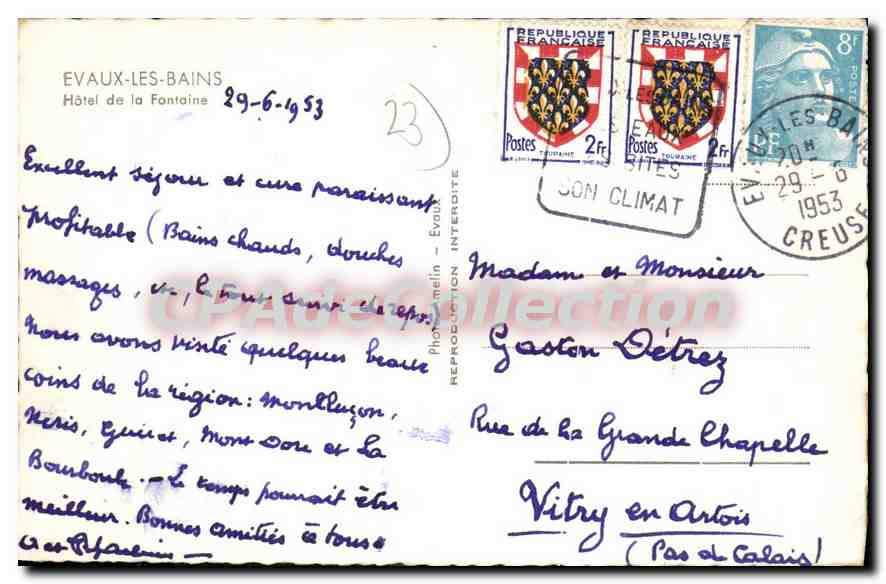 EVAUX-LES-BAINS
Hôtel de la Fontaine
29-6-1953
23
Excellent séjour et cure paraissant
profitable (Bains chauds, douches
massages, etc, le tout suivi de repos)
Nous avons visité quelques beaux
coins de la région: Montluçon,
Néris, Guéret, Mont Dore et La
Bourboule. - Le temps pourrait être
meilleur. Bonnes amitiés à tous.
Photo Amelin - Evaux
REPRODUCTION INTERDITE
REPUBLIQUE FRANÇAISE
Postes 2Fr
TOURAINE
REPUBLIQUE FRANÇAISE
Postes 2Fr
TOURAINE
8F
POSTES
SITES
SON CLIMAT
EVAUX-LES-BAINS
20H
29-6
1953
CREUSE
Madame et Monsieur
Gaston Détrez
Rue de la Grande Chapelle
Vitry en Artois
(Pas de Calais)
CPAdeCollection